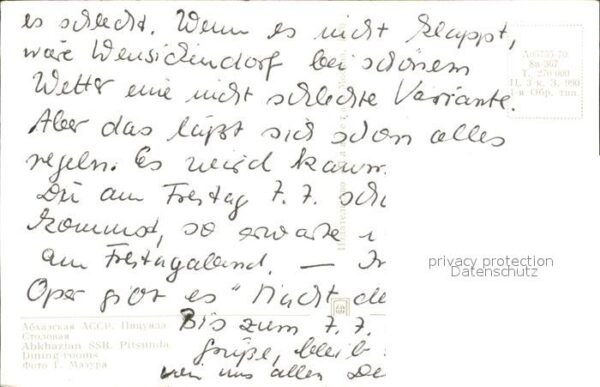 es schlecht. Wenn es nicht klappt,
wäre Wensickendorf bei schönem
Wetter eine nicht schlechte Variante.
Aber das läßt sich schon alles
regeln. Es wird kaum
Du am Freitag 7.7. sch
kommst, so erwarte
am Freitagabend. —
Oper gibt es "Nacht de
Bis zum 7.7.
Grüße, bleib
von uns allen De
А05755-70
8в-367
Т. 270 000
Ц. 3 к. З. 990
1-я Обр. тип.
privacy protection
Datenschutz
Абхазская АССР. Пицунда
Столовая
Abkhazian SSR. Pitsunda
Dining-rooms
Фото Г. Мазура